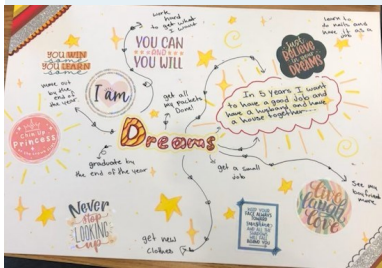 work
hard
to get what
I want
YOU WIN
some
YOU LEARN
some
YOU CAN
AND
YOU WILL
just
BELIEVE
in your
DREAMS
learn to
do nails and
have it as a
Job
move out
by the
end of
the year
I am
get all
my packets
Done!
In 5 Years I want
to have a good Job and
have a husband and have
a house together...
chin up
Princess
Dreams
graduate by
the end of the year
get a small
Job
See my
boyfriend
more
Never
stop
LOOKING
up
get new
clothes
KEEP YOUR
FACE ALWAYS
TOWARD
THE
SUNSHINE
AND ALL THE
SHADOWS
WILL FALL
BEHIND YOU
live
laugh
love